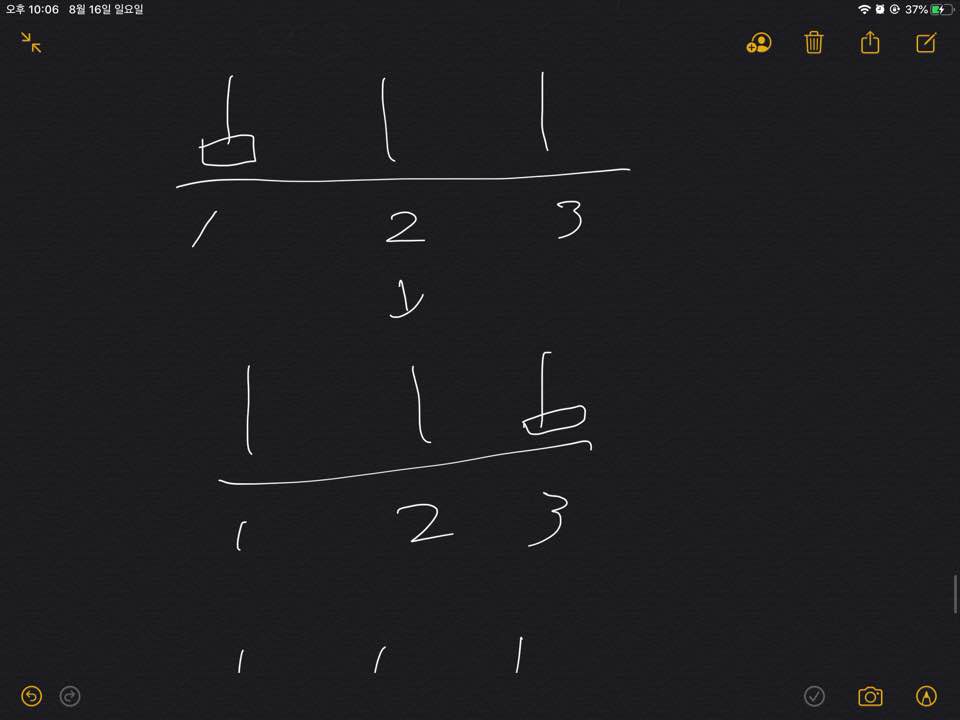 오후 10:06 8월 16일 일요일 37%
1 2 3
1 2 3